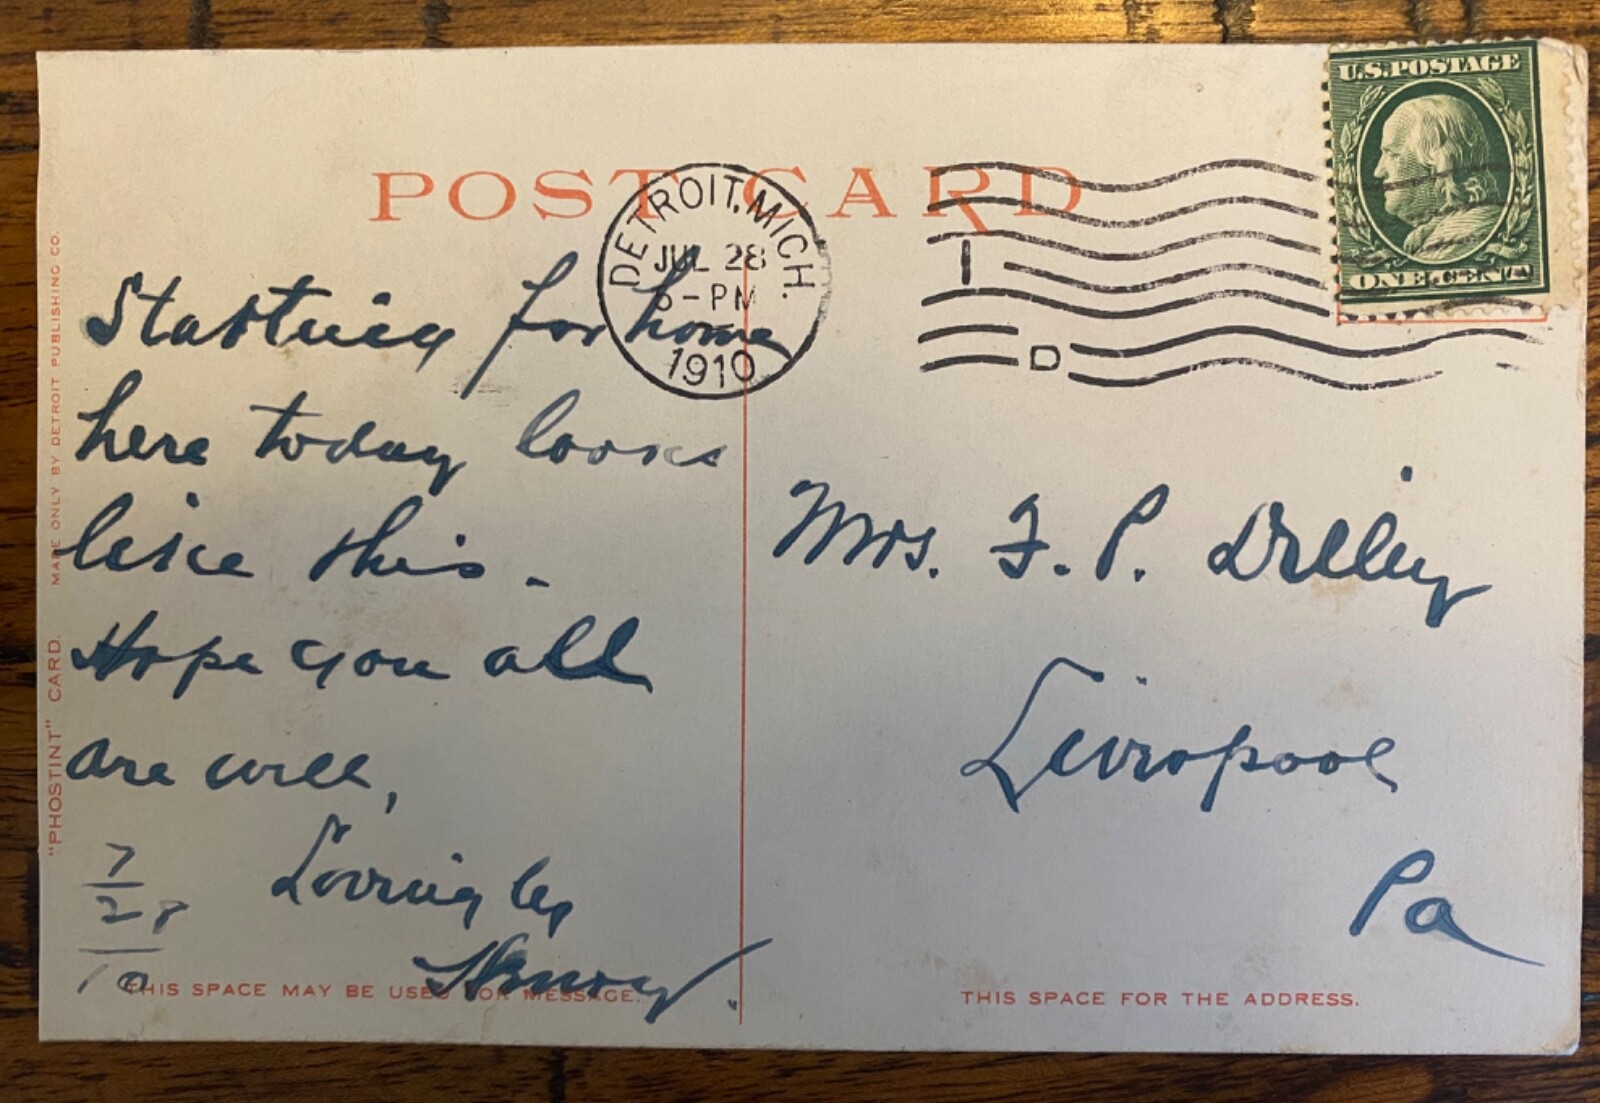 U.S. POSTAGE
ONE CENT
POST CARD
DETROIT, MICH.
JUL 28
6-PM
1910
D
Starting for home
here today looks
like this -
Hope you all
are well,
Lovingly
Henry
7
28
10
Mrs. F. P. Dilley
Liverpool
Pa
"PHOSTINT" CARD. MADE ONLY BY DETROIT PUBLISHING CO.
THIS SPACE MAY BE USED FOR MESSAGE.
THIS SPACE FOR THE ADDRESS.